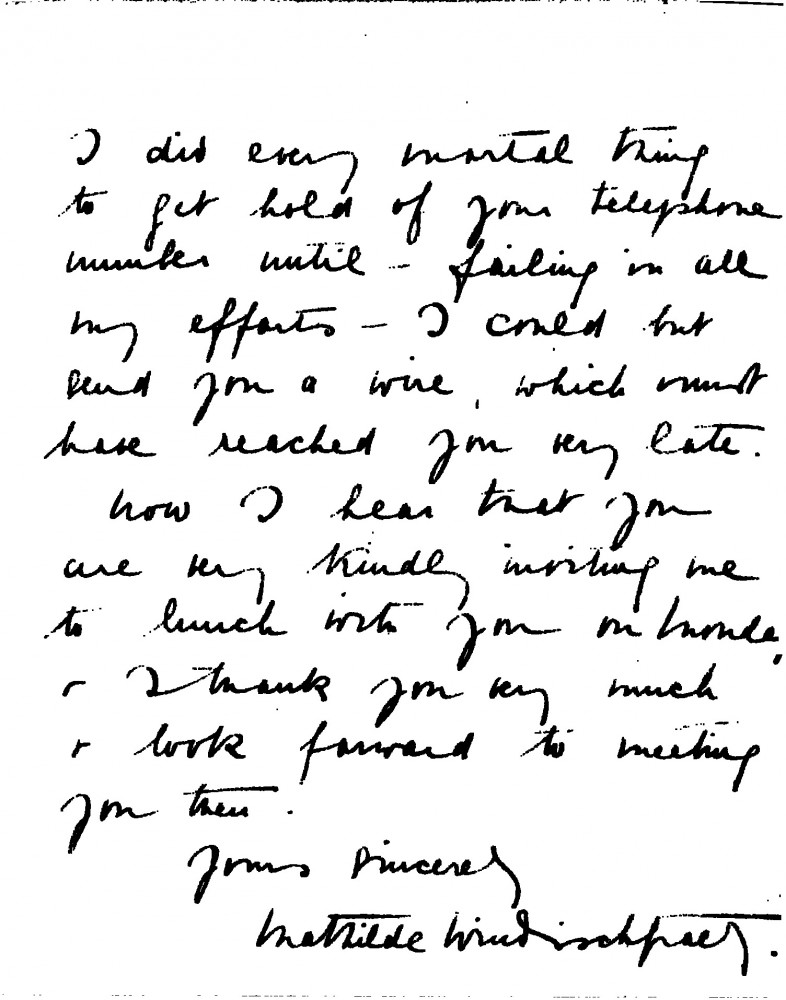 I did every mortal thing
to get hold of your telephone
number until – failing in all
my efforts – I could but
send you a wire, which must
have reached you very late.
Now I hear that you
are very kindly inviting me
to lunch with you on Monday,
+ I thank you very much
+ look forward to meeting
you then.
Yours sincerely
Mathilde Windischgraetz.